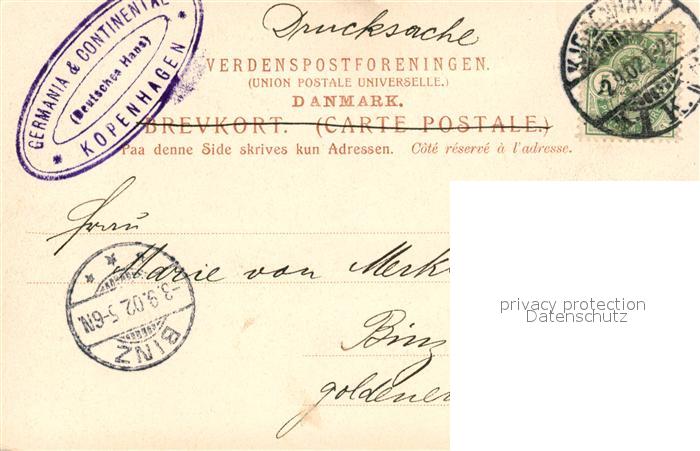 Drucksache
GERMANIA & CONTINENTAL
(Deutsches Haus)
* KOPENHAGEN *
VERDENSPOSTFORENINGEN.
(UNION POSTALE UNIVERSELLE.)
DANMARK.
BREVKORT. (CARTE POSTALE.)
Paa denne Side skrives kun Adressen. Côté réservé à l'adresse.
KJØBENHAVN
2.9.02
K
Frau
Marie von Merk
Binz
goldener
BINZ
-3.9.02.5-6N
privacy protection
Datenschutz